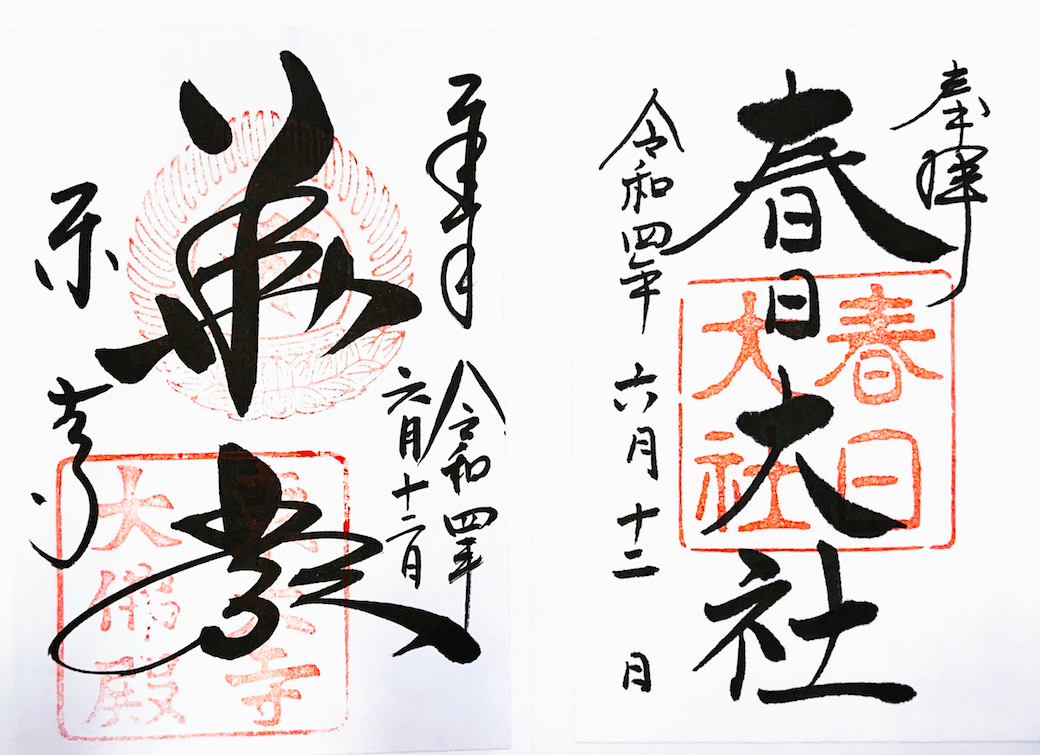 奉拝
春日大社
令和四年 六月十二日
春日
大社
奉拝
令和四年
六月十二日
華嚴
東大寺
東大寺
大佛殿